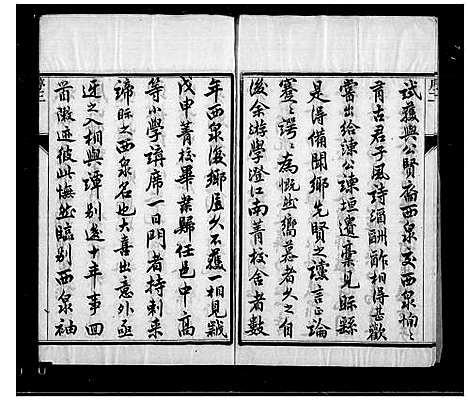 試復與公賢裔西泉交西泉恂〻
有古君子風詩酒酬酢相得甚歡
嘗出給諫公諫垣遺稾見眎繇
是得備聞鄉先賢之讜言正論
蹇〻諤〻為慨然嚮慕者久之自
後余游學澄江南菁校舍者數
年西泉復鄉居久不獲一相見歲
戊申菁校畢業歸任邑中高
等小學講席一日門者持刺來
諦眎之西泉名也大喜出意外亟
迓之入相與譚別邊十年事回
首微迹彼此憮然臨別西泉袖